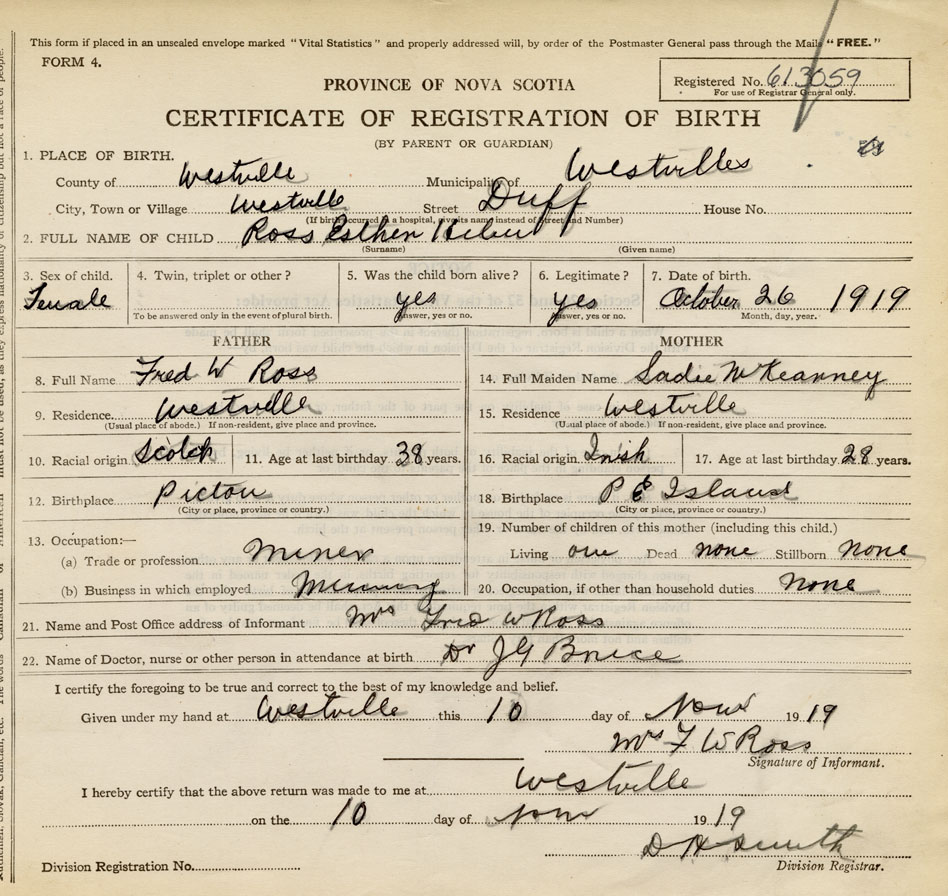 This form if placed in an unsealed envelope marked "Vital Statistics" and properly addressed will, by order of the Postmaster General pass through the Mails "FREE."
FORM 4.
Registered No. 613059
For use of Registrar General only.
PROVINCE OF NOVA SCOTIA
CERTIFICATE OF REGISTRATION OF BIRTH
(BY PARENT OR GUARDIAN)
1. PLACE OF BIRTH.
County of Westville Municipality of Westville
City, Town or Village Westville Street Duff House No.
(If birth occurred in a hospital, give its name instead of Street and Number)
2. FULL NAME OF CHILD Ross Esther
(Surname) (Given name)
3. Sex of child. 4. Twin, triplet or other? 5. Was the child born alive? 6. Legitimate? 7. Date of birth.
Female yes yes October 26 1919
To be answered only in the event of plural birth. Answer, yes or no. Answer, yes or no. Month, day, year.
FATHER MOTHER
8. Full Name Fred W Ross 14. Full Maiden Name Sadie McKearney
9. Residence Westville 15. Residence Westville
(Usual place of abode.) If non-resident, give place and province. (Usual place of abode.) If non-resident, give place and province.
10. Racial origin Scotch 11. Age at last birthday 38 years. 16. Racial origin Irish 17. Age at last birthday 28 years.
12. Birthplace Pictou 18. Birthplace P E Island
(City or place, province or country.) (City or place, province or country.)
19. Number of children of this mother (including this child.)
13. Occupation:—
(a) Trade or profession Miner Living one Dead none Stillborn none
(b) Business in which employed Mining 20. Occupation, if other than household duties none
21. Name and Post Office address of Informant Mrs Fred W Ross
22. Name of Doctor, nurse or other person in attendance at birth Dr J G Bruce
I certify the foregoing to be true and correct to the best of my knowledge and belief.
Given under my hand at Westville this 10 day of Nov 1919
Mrs F W Ross
Signature of Informant.
I hereby certify that the above return was made to me at Westville
on the 10 day of Nov 1919
D H Smith
Division Registration No. Division Registrar.